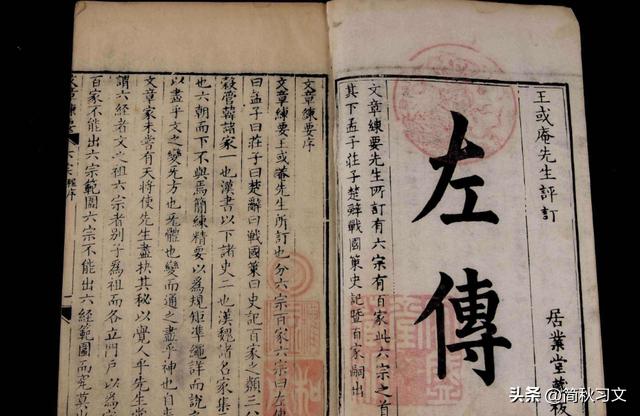 王或庵先生評訂
左傳
居業堂藏
文章練要先生所訂有六宗有百家此六宗之首
其下孟子莊子楚辭戰國策史記暨百家嗣出
文章練要序
文章練要王或菴先生所訂也分六宗百家六宗曰左傳
曰孟子曰莊子曰楚辭曰戰國策曰史記百家之類三公
穀管韓諸家一也漢書以下諸史二也漢魏諸名家集
也六朝而下不與焉簡練精要以為規矩準繩詳而說之
以盡乎文之變方也體也變而通之盡乎神也自
文章家未嘗有天將使先生盡抉其秘以覺人乎先生
謂六經者文之祖六宗者別子為祖而各立門戶以為
百家不能出六宗範圍六宗不能出六經範圍而究莫
文章練要 六宗 序
头条 @简秋习文